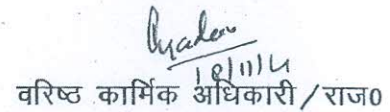 18/11/14
वरिष्ठ कार्मिक अधिकारी/राज0